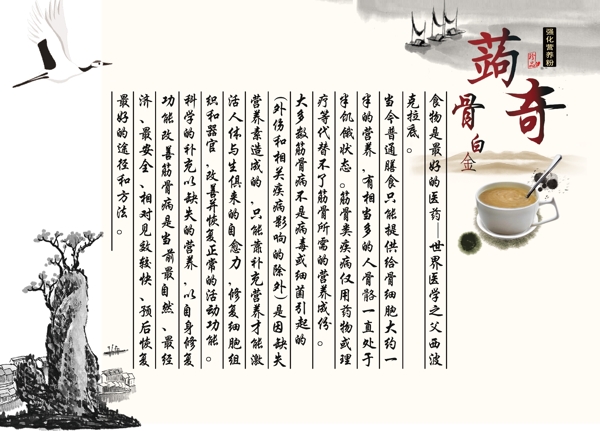 强化营养粉
蒟奇
骨白金
食物是最好的医药——世界医学之父西波
克拉底。
当今普通膳食只能提供给骨细胞大约一
半的营养，有相当多的人骨骼一直处于
半饥饿状态。筋骨类疾病仅用药物或理
疗等代替不了筋骨所需的营养成份。
大多数筋骨病不是病毒或细菌引起的
(外伤和相关疾病影响的除外)是因缺失
营养素造成的，只能靠补充营养才能激
活人体与生俱来的自愈力，修复细胞组
织和器官，改善并恢复正常的活动功能。
科学的补充以缺失的营养，以自身修复
功能改善筋骨病是当前最自然、最经
济、最安全、相对见效较快、预后恢复
最好的途径和方法。